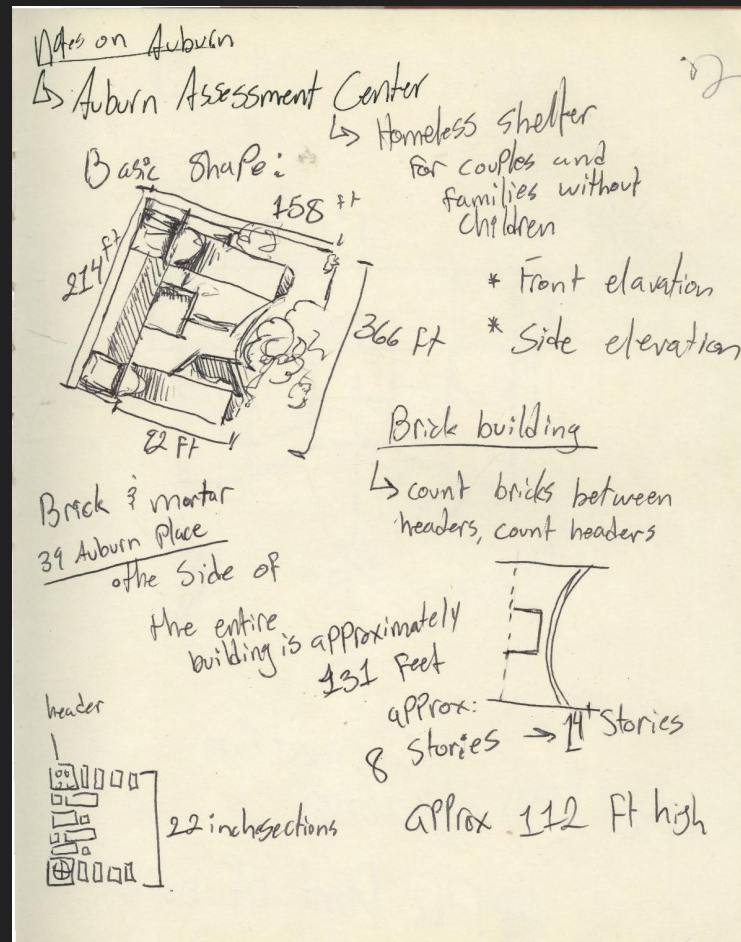 Notes on Auburn
↳ Auburn Assessment Center
↳ Homeless shelter
for couples and
families without
children
Basic Shape:
158 ft
214 ft
366 Ft
82 Ft
* Front elavation
* Side elevation
Brick building
↳ count bricks between
headers, count headers
Brick & mortar
39 Auburn Place
the Side of
the entire
building is approximately
131 Feet
approx:
8 Stories → 14+ Stories
approx 112 Ft high
header
22 inch sections